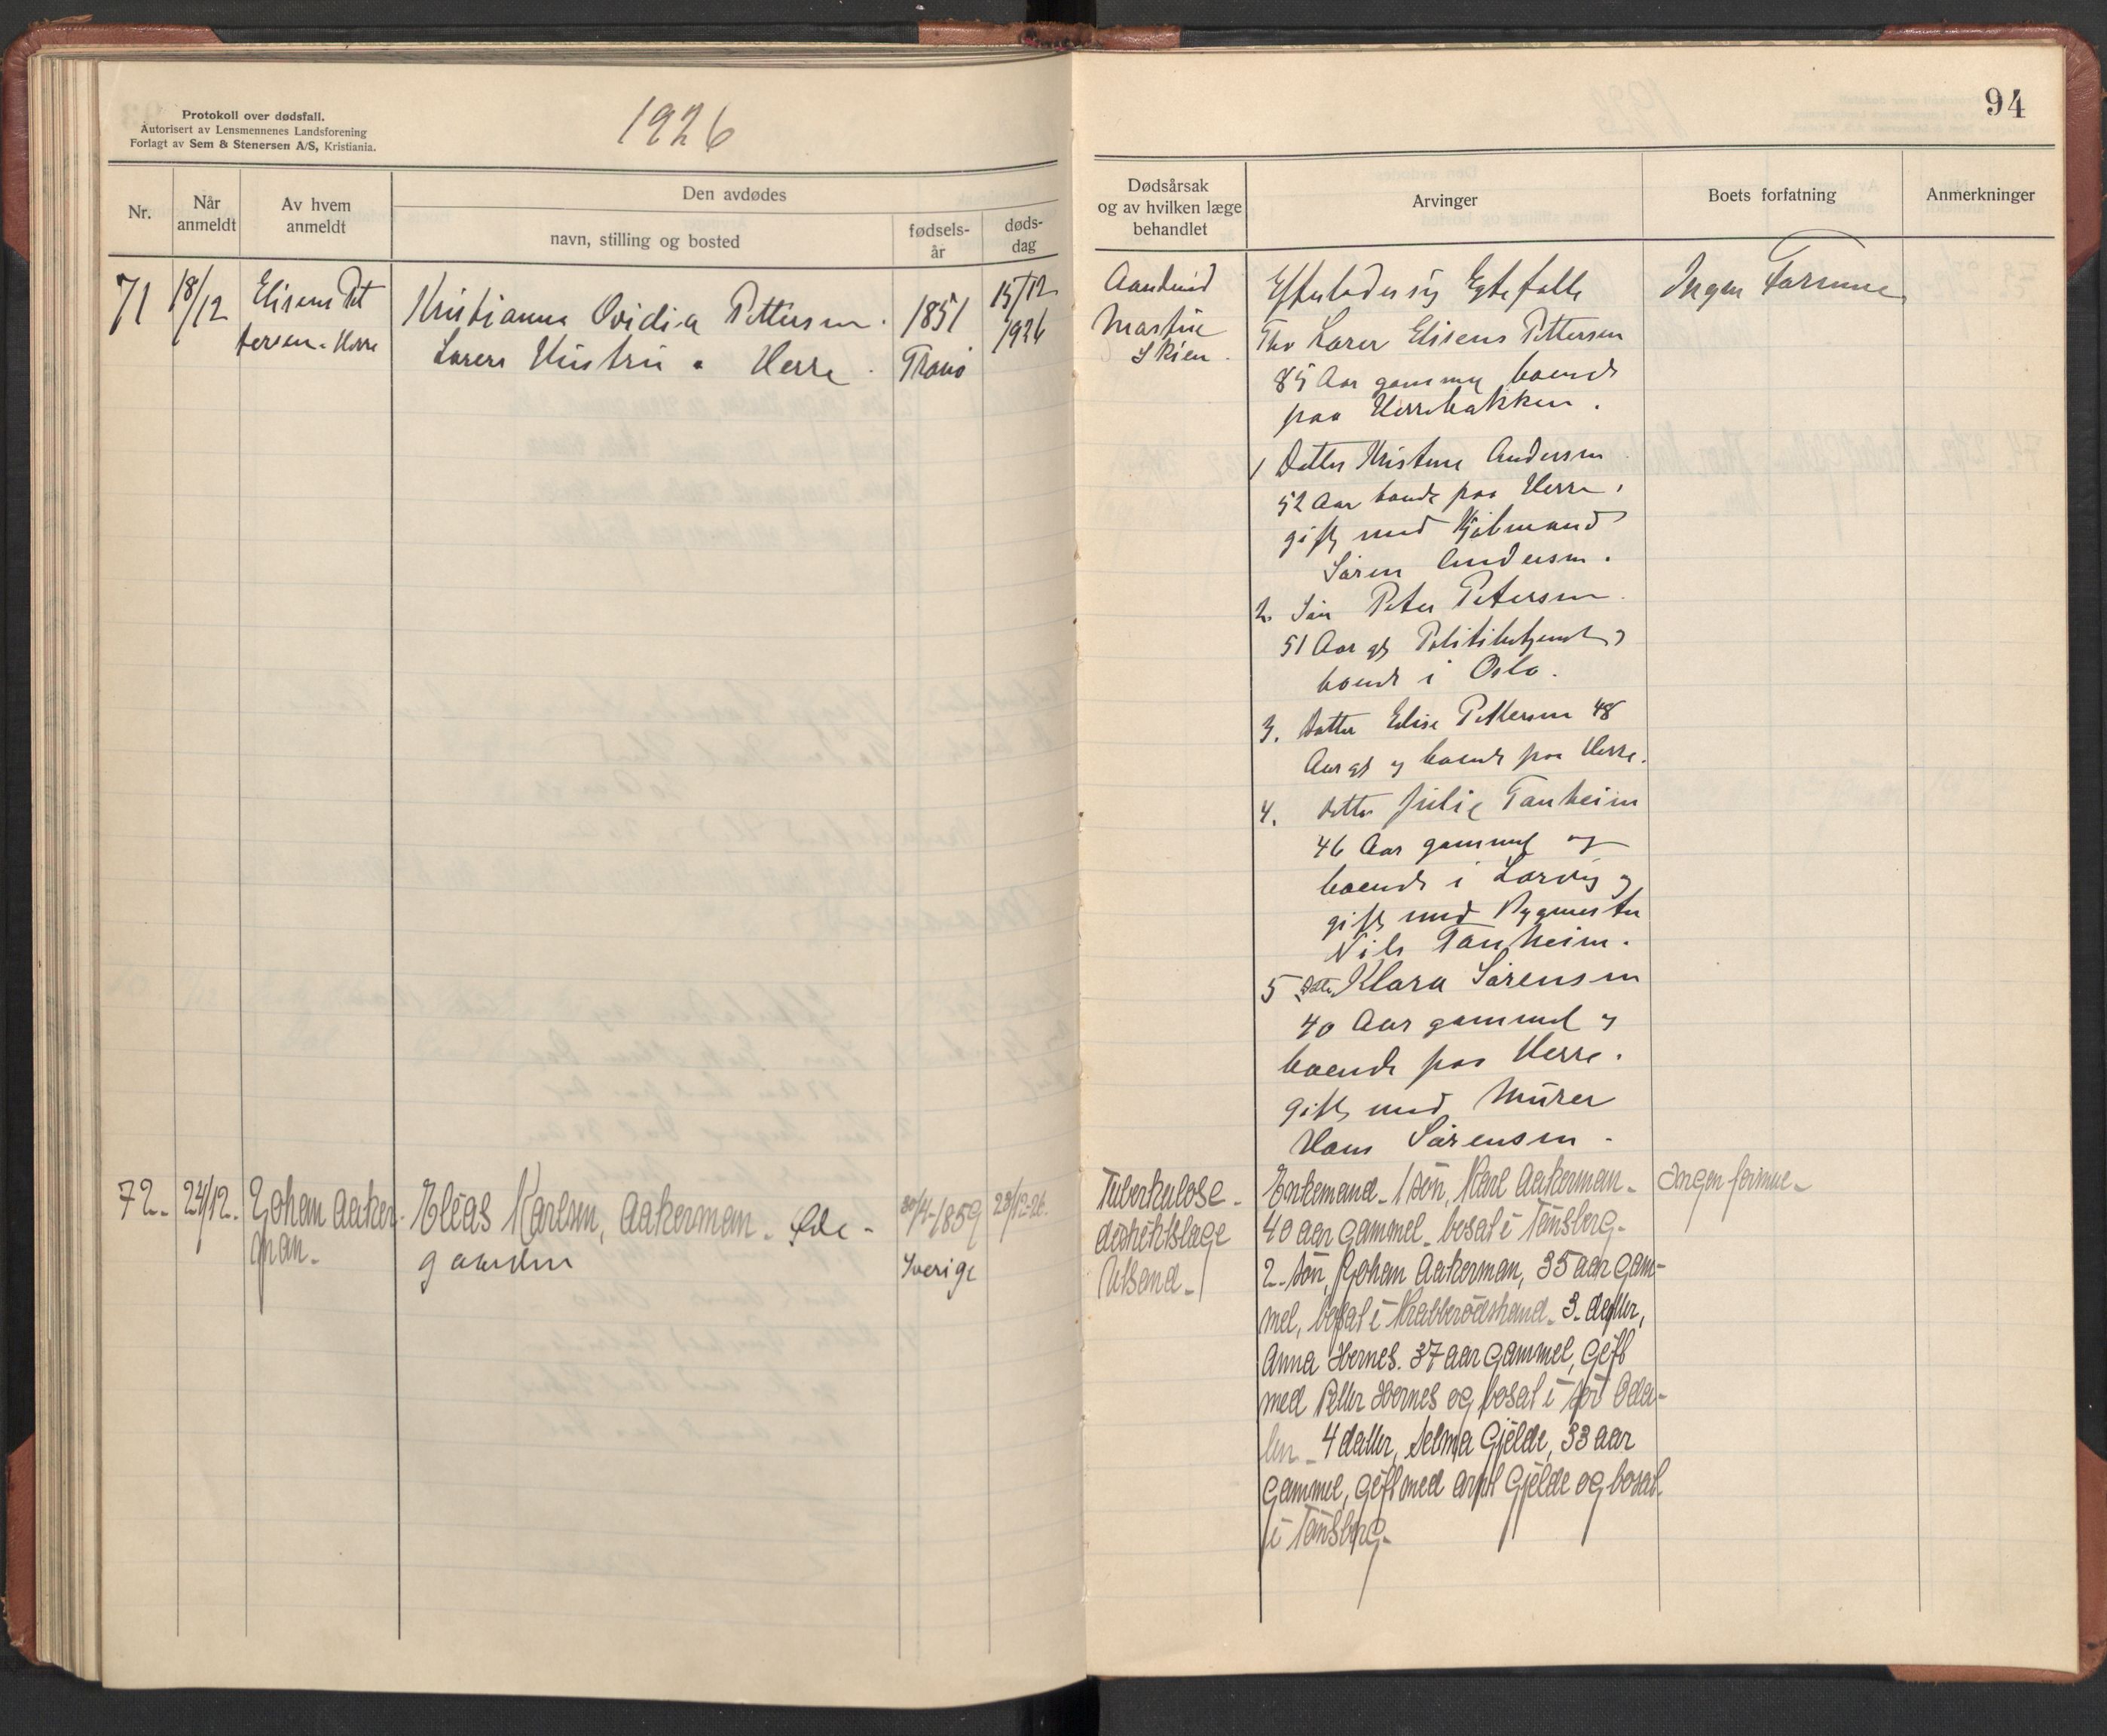 Protokoll over dødsfall.
Autorisert av Lensmennenes Landsforening
Forlagt av Sem & Stenersen A/S, Kristiania.
1926
94
Nr.
Når anmeldt
Av hvem anmeldt
Den avdødes
navn, stilling og bosted
fødsels-
år
døds-
dag
Dødsårsak
og av hvilken læge
behandlet
Arvinger
Boets forfatning
Anmerkninger
71
18/12
Elisens Pet
tersen. Herre
Kristianna Ovidia Pettersen.
Larers Hustru. Herre.
1851
15/12
1926
Martin
Skien.
Efterlader sig Egtefelle
Elisens Pettersen
85 Aar gammel boende
paa Herrebakken.
1 Datter Kristine Andersen
52 Aar boende paa Herre,
gift med Kjøbmand
Søren Andersen.
2. Søn Peter Petersen.
51 Aar gl Politibetjent,
boende i Oslo.
3. Datter Elise Pettersen 48
Aar gl og boende paa Herre.
4. Datter Julie Tanheim
46 Aar gammel og
boende i Larvig og
gift med Bygmester
Nils Tanheim.
5 Datter Klara Sørensen
40 Aar gammel og
boende paa Herre.
gift med Murer
Hans Sørensen.
Ingen Formue
72.
24/12.
Johan Aaker-
man.
Elias Karlsen, Aakerman.
30/4-1859
Sverige
23/12-26.
Tuberkulose.
distriktslæge
Enkemand. 1 søn, Karl Aakerman.
40 aar gammel. bosat i Tønsberg.
2. søn, Johan Aakerman, 35 aar gam-
mel, bosat i Krabberødstrand. 3. datter,
Anna Hernes. 37 aar gammel, gift
med Petter Hernes og bosat i Sør Oda-
len. 4 datter, Selma Gjelde, 33 aar
gammel, gift med Arnt Gjelde og bosat.
i Tønsberg.
Ingen formue.